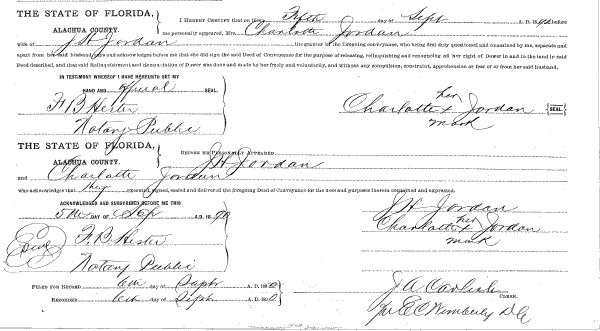 THE STATE OF FLORIDA,
ALACHUA COUNTY.
I HEREBY CERTIFY that on this Fifth day of Sept A. D. 1890 before
me personally appeared, Mrs. Charlotte Jordan
wife of J H Jordan the grantor of the foregoing conveyance, who being first duly questioned and examined by me, separate and
apart from her said husband, did acknowledge before me that she did sign the said Deed of Conveyance for the purpose of releasing, relinquishing and renouncing all her right of Dower in and to the land in said
Deed described, and that said Relinquishment and Renunciation of Dower was done and made by her freely and voluntarily, and without any compulsion, constraint, apprehension or fear of or from her said husband.
IN TESTIMONY WHEREOF I HAVE HEREUNTO SET MY
HAND AND official SEAL.
F. B Hester
Notary Public
Charlotte x Jordan SEAL
her
mark
THE STATE OF FLORIDA,
ALACHUA COUNTY.
BEFORE ME PERSONALLY APPEARED J H Jordan
and Charlotte Jordan
who acknowledge that they executed, signed, sealed and deliver ed the foregoing Deed of Conveyance for the uses and purposes therein contained and expressed.
ACKNOWLEDGED AND SUBSCRIBED BEFORE ME THIS
5th DAY OF Sep A. D. 1890
F. B. Hester
Notary Public
J H Jordan
Charlotte x Jordan
her
mark
FILED FOR RECORD 6th day of Septr A. D. 1890
RECORDED 6th day of Septr A. D. 1890
J A Carlisle
CLERK.
pr E C Wimberly D C